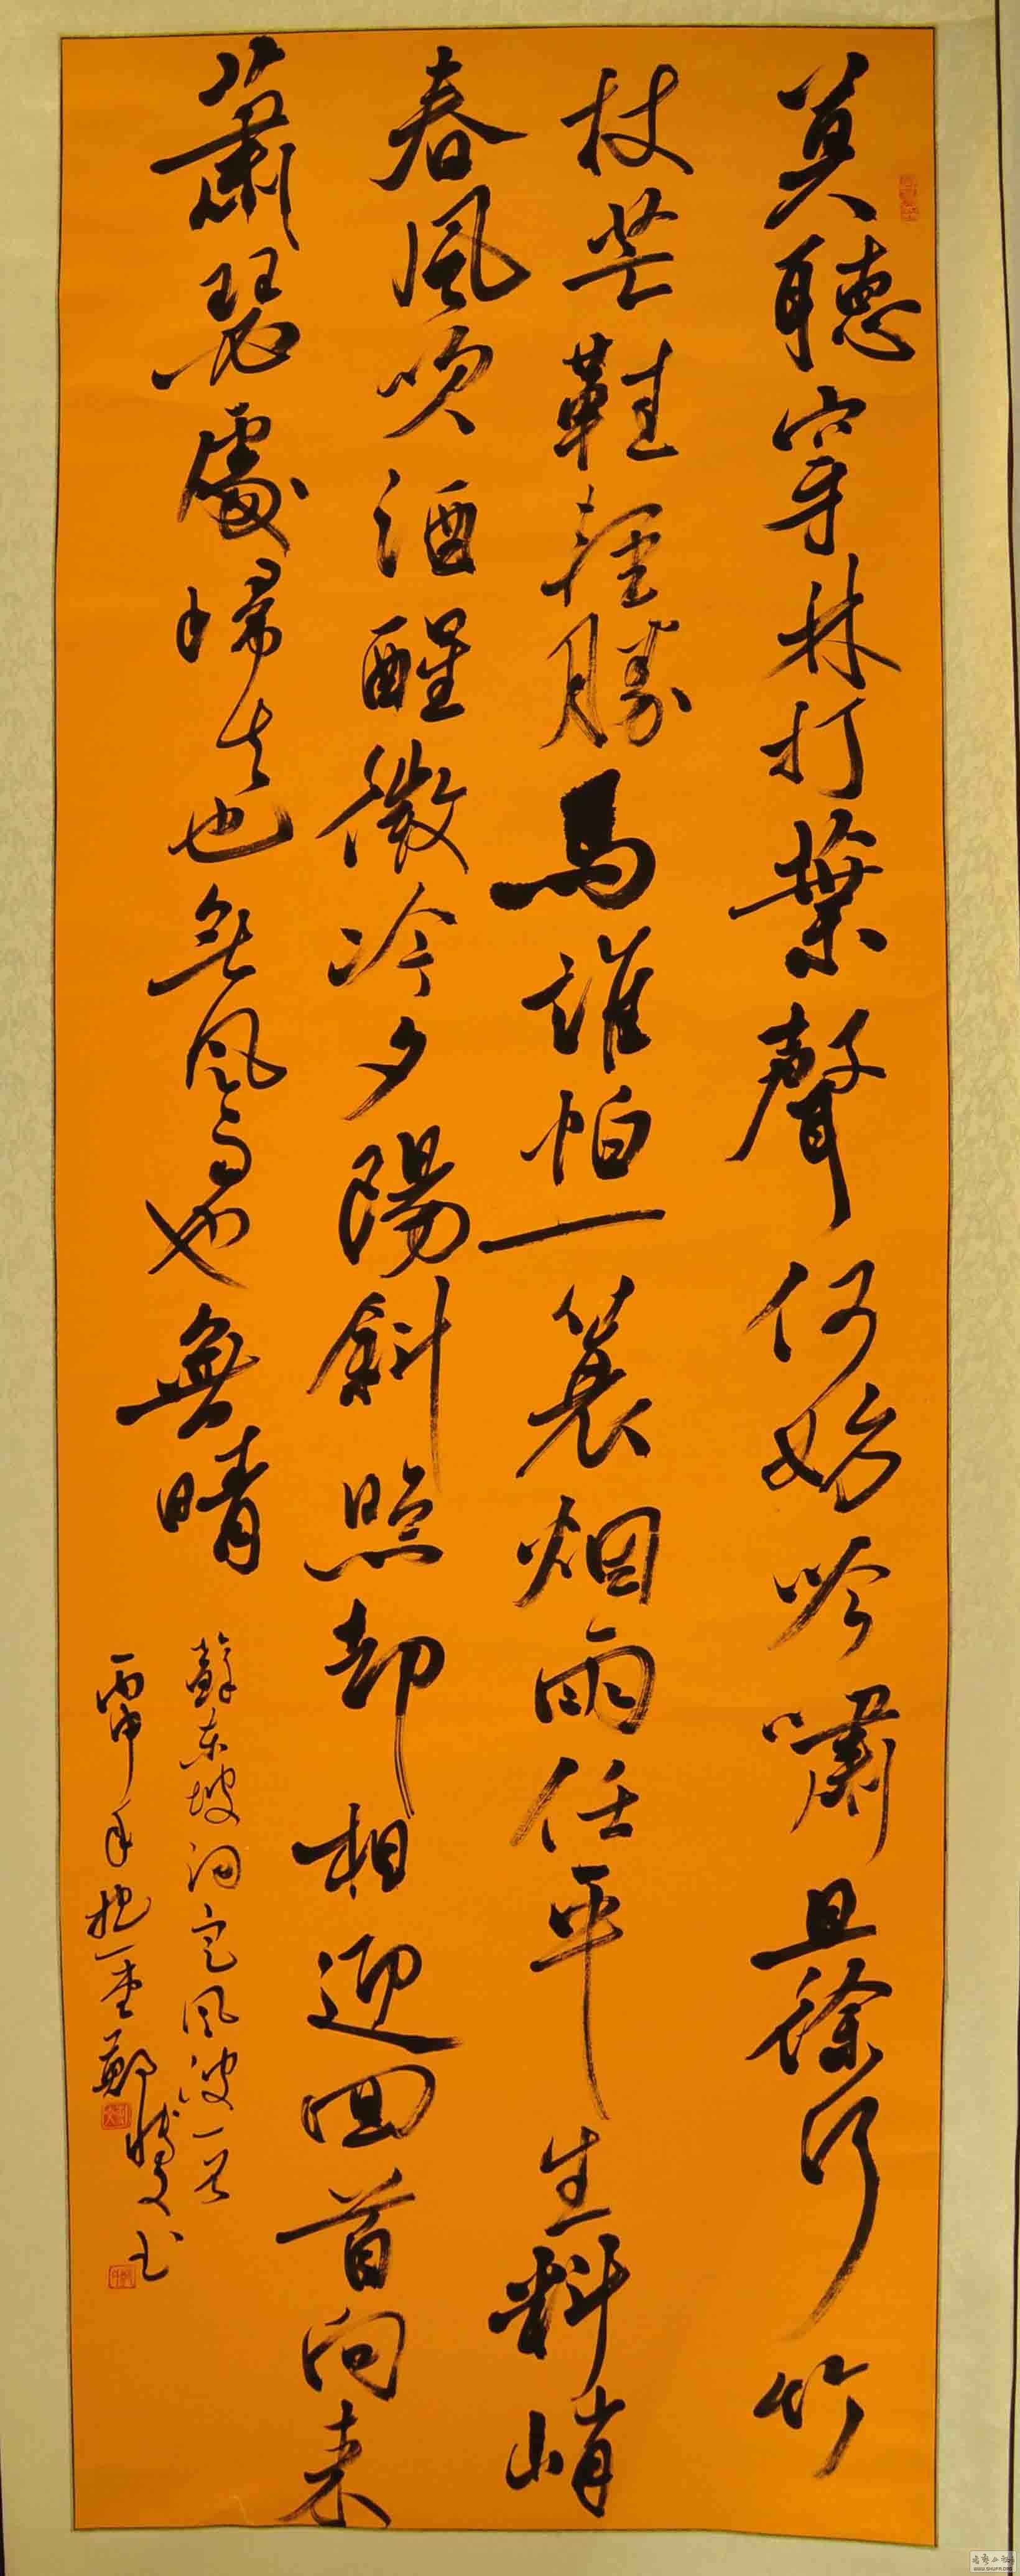 莫聽穿林打葉聲何妨吟嘯且徐行竹
杖芒鞋輕勝馬誰怕一蓑烟雨任平生料峭
春風吹酒醒微冷夕陽斜照却相迎回首向来
蕭瑟處歸去也無風雨也無晴
蘇东坡词定风波一首
丙申年抱一堂鄭